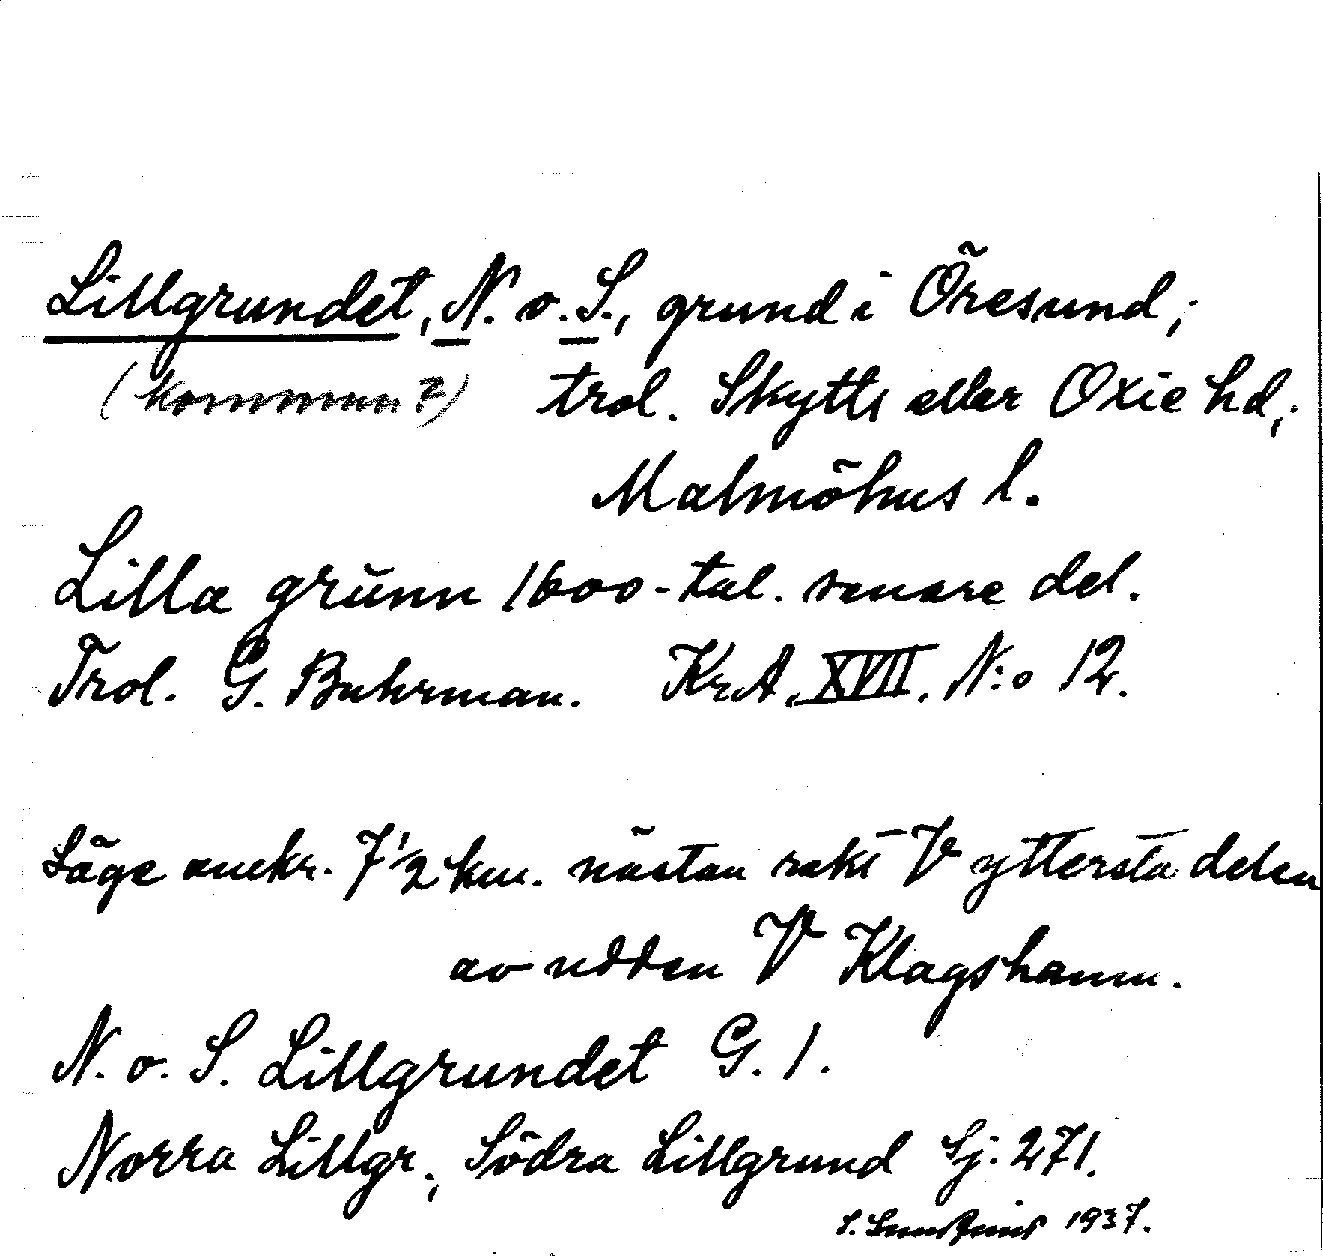 Lillgrundet, N. o. S., grund i Öresund;
(kommun?) trol. Skytts eller Oxie hd,;
Malmöhus l.
Lilla grŭnn 1600-tal. senare del.
Trol. G. Buhrman. KrA. XVII. N:o 12.
Läge omkr. 7 1/2 km. nästan rakt V yttersta delen
av udden V Klagshamn.
N. o. S. Lillgrundet G. 1.
Norra Lillgr., Södra Lillgrund Sj: 271.
1937.